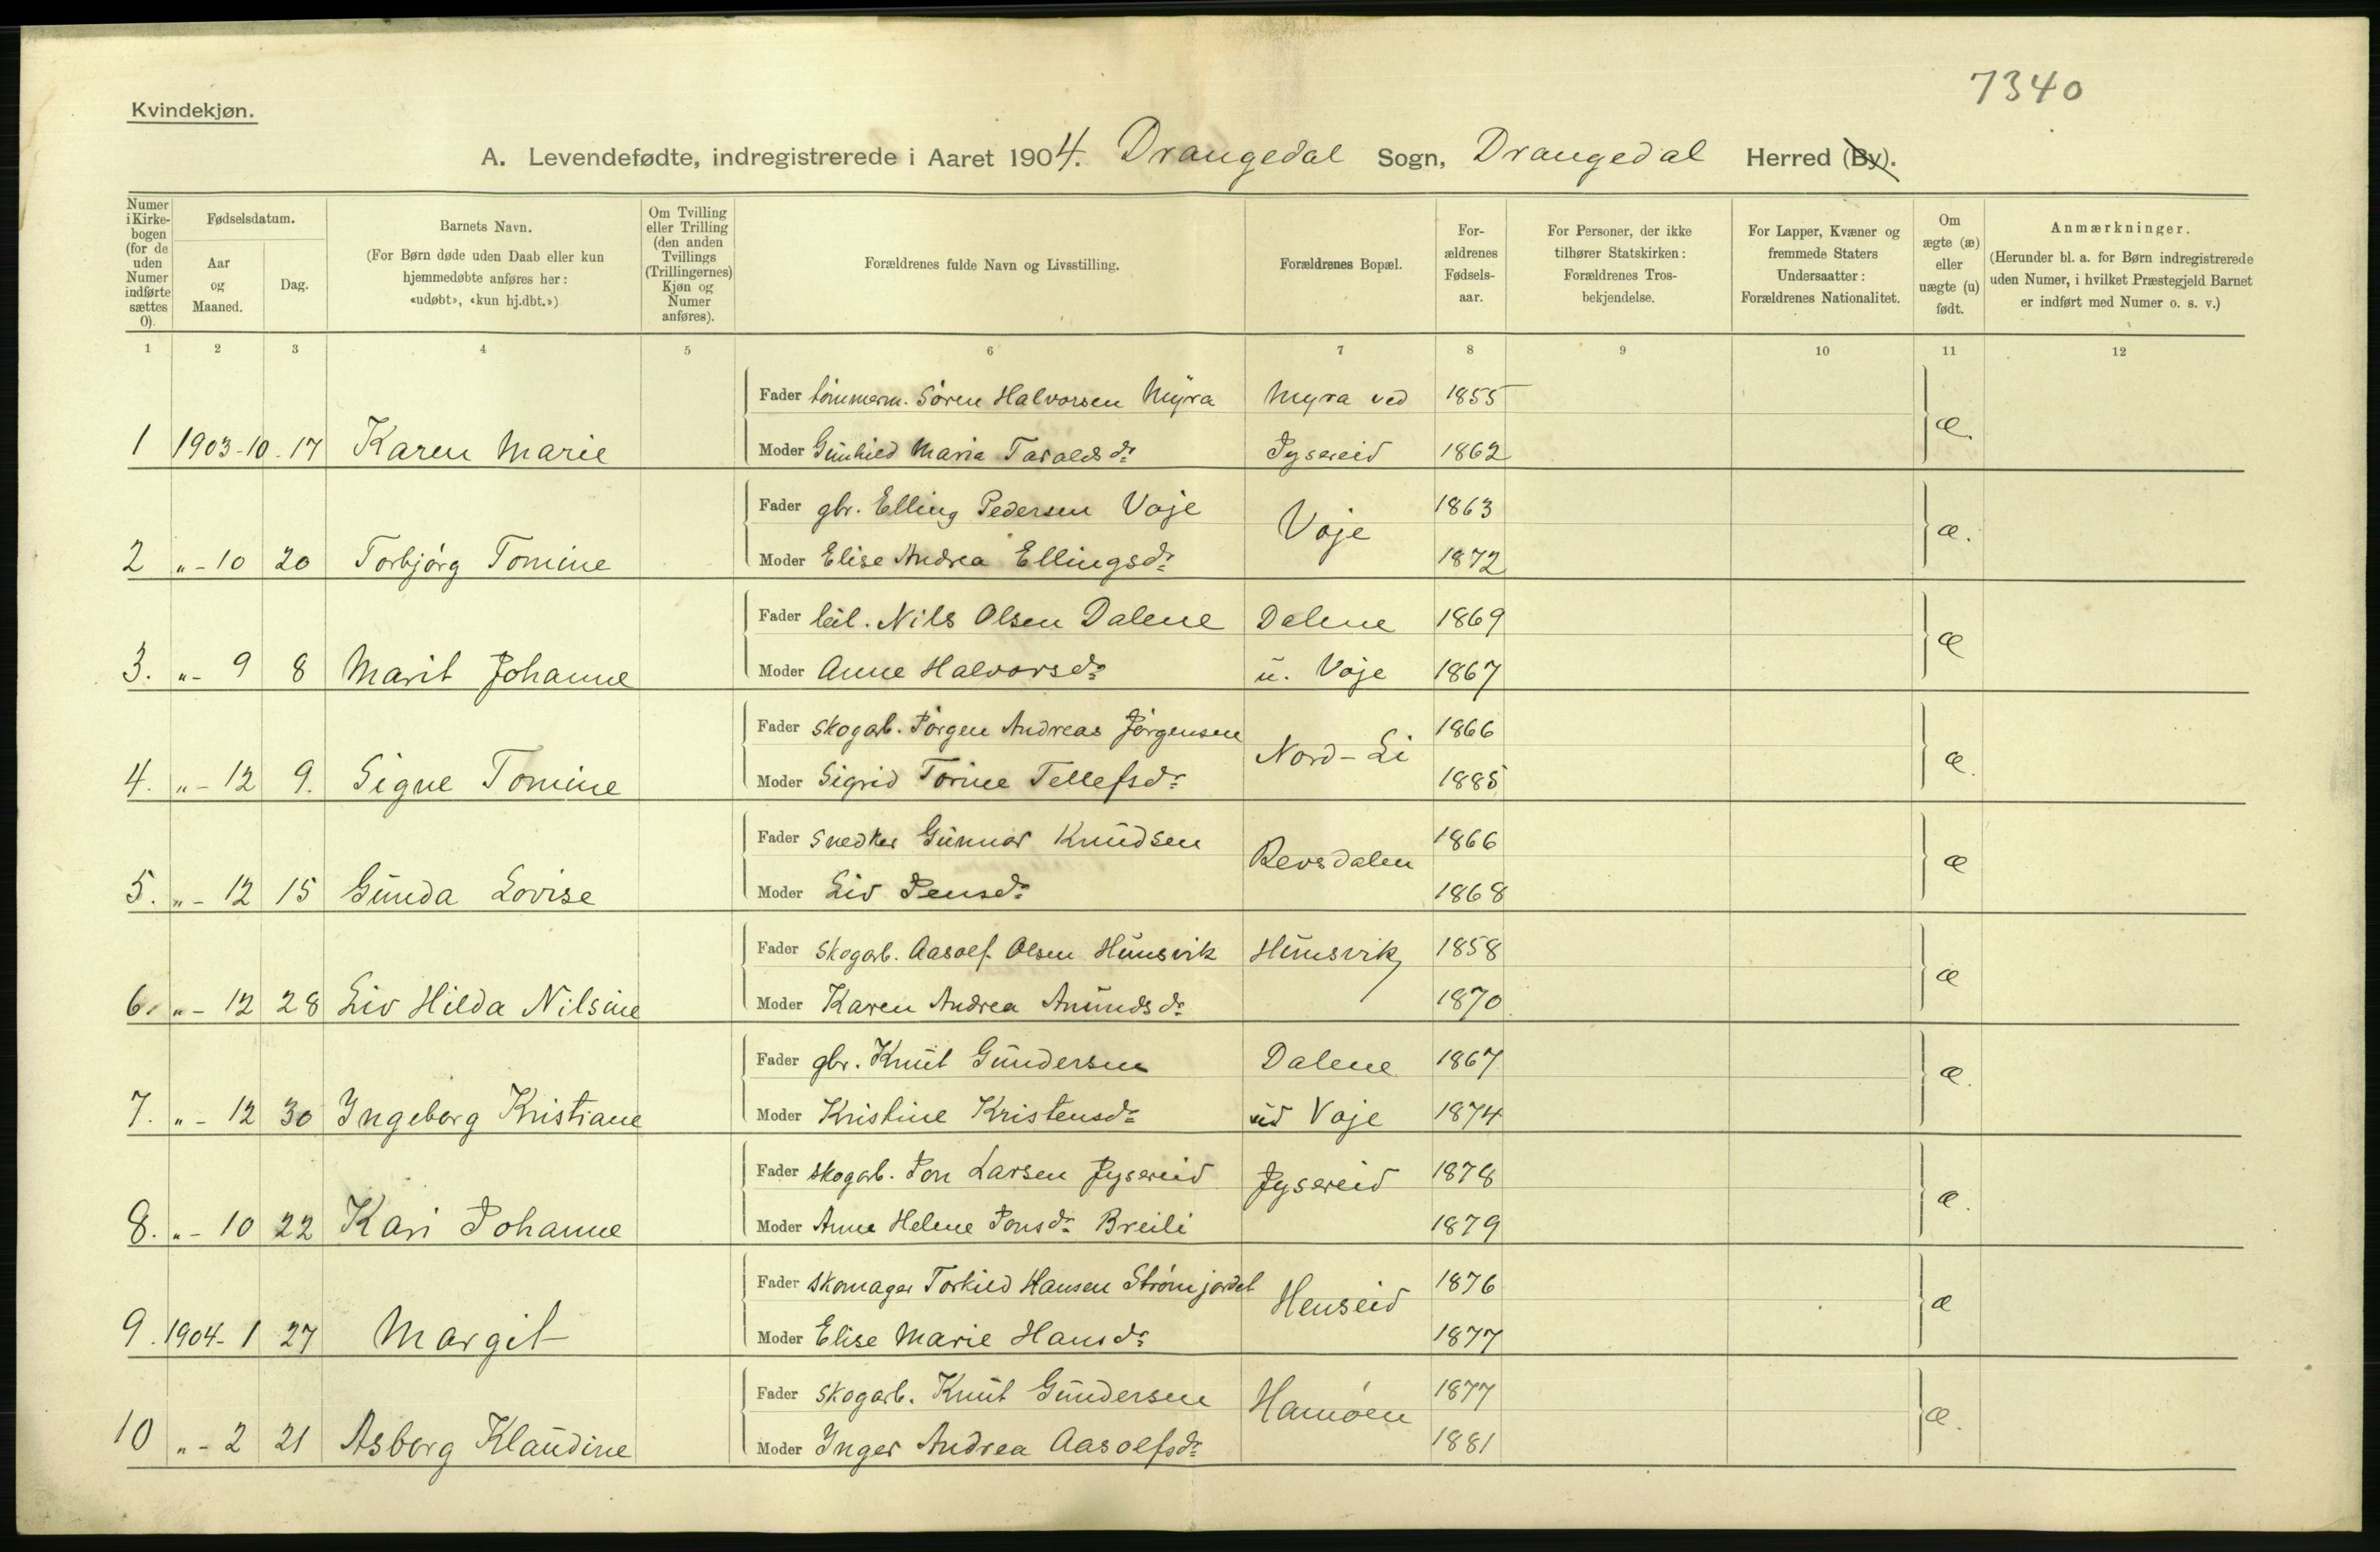 7340
Kvindekjøn.
A. Levendefødte, indregistrerede i Aaret 1904. Drangedal Sogn, Drangedal Herred (By).
Numer i Kirkebogen (for de uden Numer indførte sættes 0).
Fødselsdatum.
Aar og Maaned.
Dag.
Barnets Navn.
(For Børn døde uden Daab eller kun hjemmedøbte anføres her: «udøbt», «kun hj.dbt.»)
Om Tvilling eller Trilling (den anden Tvillings (Trillingernes) Kjøn og Numer anføres).
Forældrenes fulde Navn og Livsstilling.
Forældrenes Bopæl.
Forældrenes Fødselsaar.
For Personer, der ikke tilhører Statskirken: Forældrenes Trosbekjendelse.
For Lapper, Kvæner og fremmede Staters Undersaatter: Forældrenes Nationalitet.
Om ægte (æ) eller uægte (u) født.
Anmærkninger.
(Herunder bl. a. for Børn indregistrerede uden Numer, i hvilket Præstegjeld Barnet er indført med Numer o. s. v.)
1 2 3 4 5 6 7 8 9 10 11 12
Fader tømmerm. Søren Halvorsen Myra Myra ved 1855
æ.
1 1903-10.17 Karen Marie Moder Gunhild Maria Taraldsdr Jysereid 1862
Fader gbr. Elling Pedersen Voje Voje 1863
æ.
2 "-10 20 Torbjørg Tomine Moder Elise Andrea Ellingsdr 1872
Fader leil. Nils Olsen Dalene Dalene 1869
æ
3. "- 9 8 Marit Johanne Moder Anne Halvorsdr u. Voje 1867
Fader skogarb. Jørgen Andreas Jørgensen Nord-Li 1866
æ.
4. "-12 9. Signe Tomine Moder Sigrid Torine Tellefsdr 1885
Fader Snedker Gunnar Knudsen Revsdalen 1866
æ
5. "-12 15 Gunda Lovise Moder Liv Jensdr 1868
Fader Skogarb. Aasolf Olsen Hunsvik Hunsvik 1858
æ
6. "-12 28 Liv Hilda Nilsine Moder Karen Andrea Anundsdr 1870
Fader gbr. Knut Gundersen Dalene 1867
æ.
7. "-12 30 Ingeborg Kristiane Moder Kristine Kristensdr ud Voje 1874
Fader skogarb. Jon Larsen Jysereid Jysereid 1878
æ.
8. "-10 22 Kari Johanne Moder Anne Helene Jonsdr Breili 1879
Fader skomager Torkild Hansen Strømjordet Henseid 1876
æ
9. 1904-1 27 Margit Moder Elise Marie Hansdr 1877
Fader skogarb. Knut Gundersen Hamøen 1877
æ.
10 "-2 21 Asborg Klaudine Moder Inger Andrea Aasolfsdr 1881